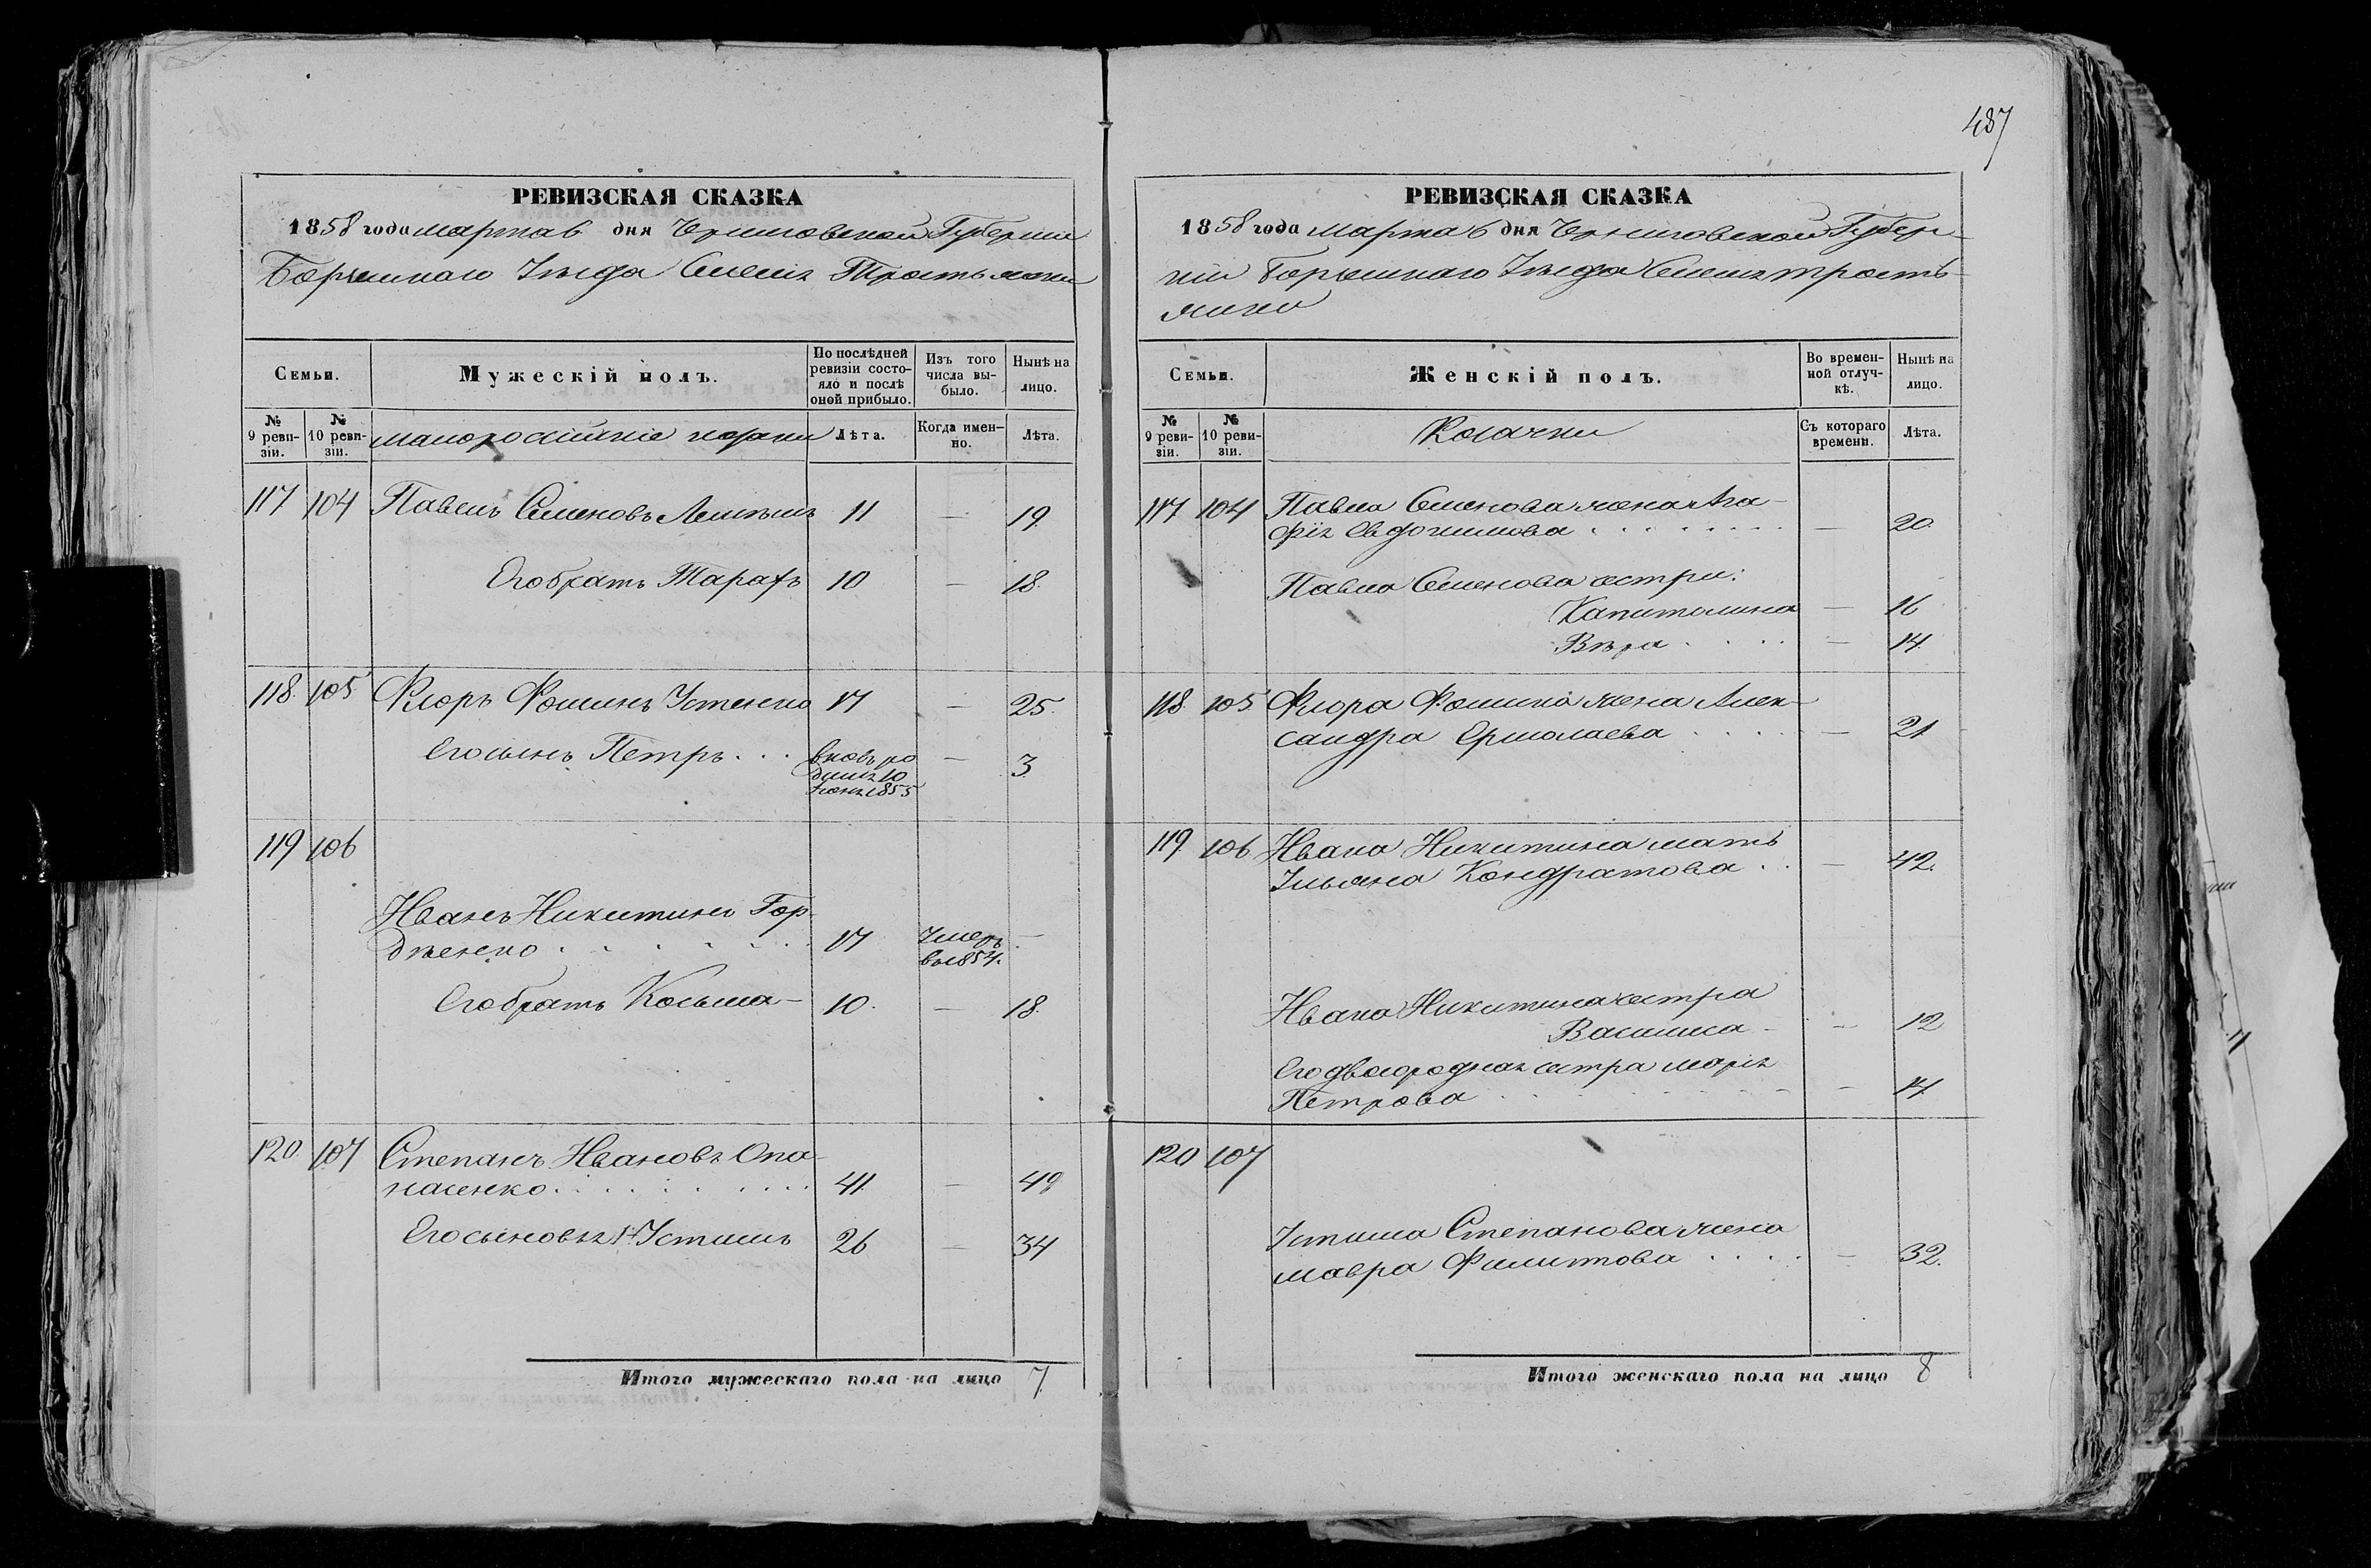 487
РЕВИЗСКАЯ СКАЗКА
1858 года марта 6 дня Черниговской Губерніи
Борзенскаго Уезда
Семьи.
Мужескій полъ.
По послѣдней ревизіи состояло и послѣ оной прибыло.
Изъ того числа выбыло.
Нынѣ на лицо.
№ 9 ревизіи.
№ 10 ревизіи.
малороссійскіе козаки
Лѣта.
Когда именно.
Лѣта.
117 104 Павелъ Семеновъ 11 — 19
Его братъ Тарахъ 10 — 18
118 105 Флоръ Фоминъ Устенко 17 — 25
Его сынъ Петръ 
вновь ро
дился 10 — 3
1855
119 106
Иванъ Никитинъ Гор
дѣенко 17 Умеръ —
въ 1854
Его братъ Косьма 10 — 18
120 107 Степанъ Ивановъ Опа
насенко 41 — 49
Его сыновья 1й Устимъ 26 — 34
Итого мужескаго пола на лицо 7
РЕВИЗСКАЯ СКАЗКА
1858 года марта 6 дня Черниговской Губер
ніи Борзенскаго Уезда
Семьи.
Женскій полъ.
Во временной отлучкѣ.
Нынѣ на лицо.
№ 9 ревизіи.
№ 10 ревизіи.
Козачки
Съ котораго времени.
Лѣта.
117 104 Павла Семенова жена Ага
фія Евдокимова — 20
Павла Семенова сестры:
Капитолина — 16
Вѣра — 14
118 105 Флора Фомина жена Алек
сандра Ермолаева — 21
119 106 Ивана Никитина мать
Ульяна Кондратова — 42
Ивана Никитина сестра
Василиса — 12
Его двоюродная сестра Марія
Петрова — 14
120 107
Устима Степанова жена
Мавра Филипова — 32
Итого женскаго пола на лицо 8